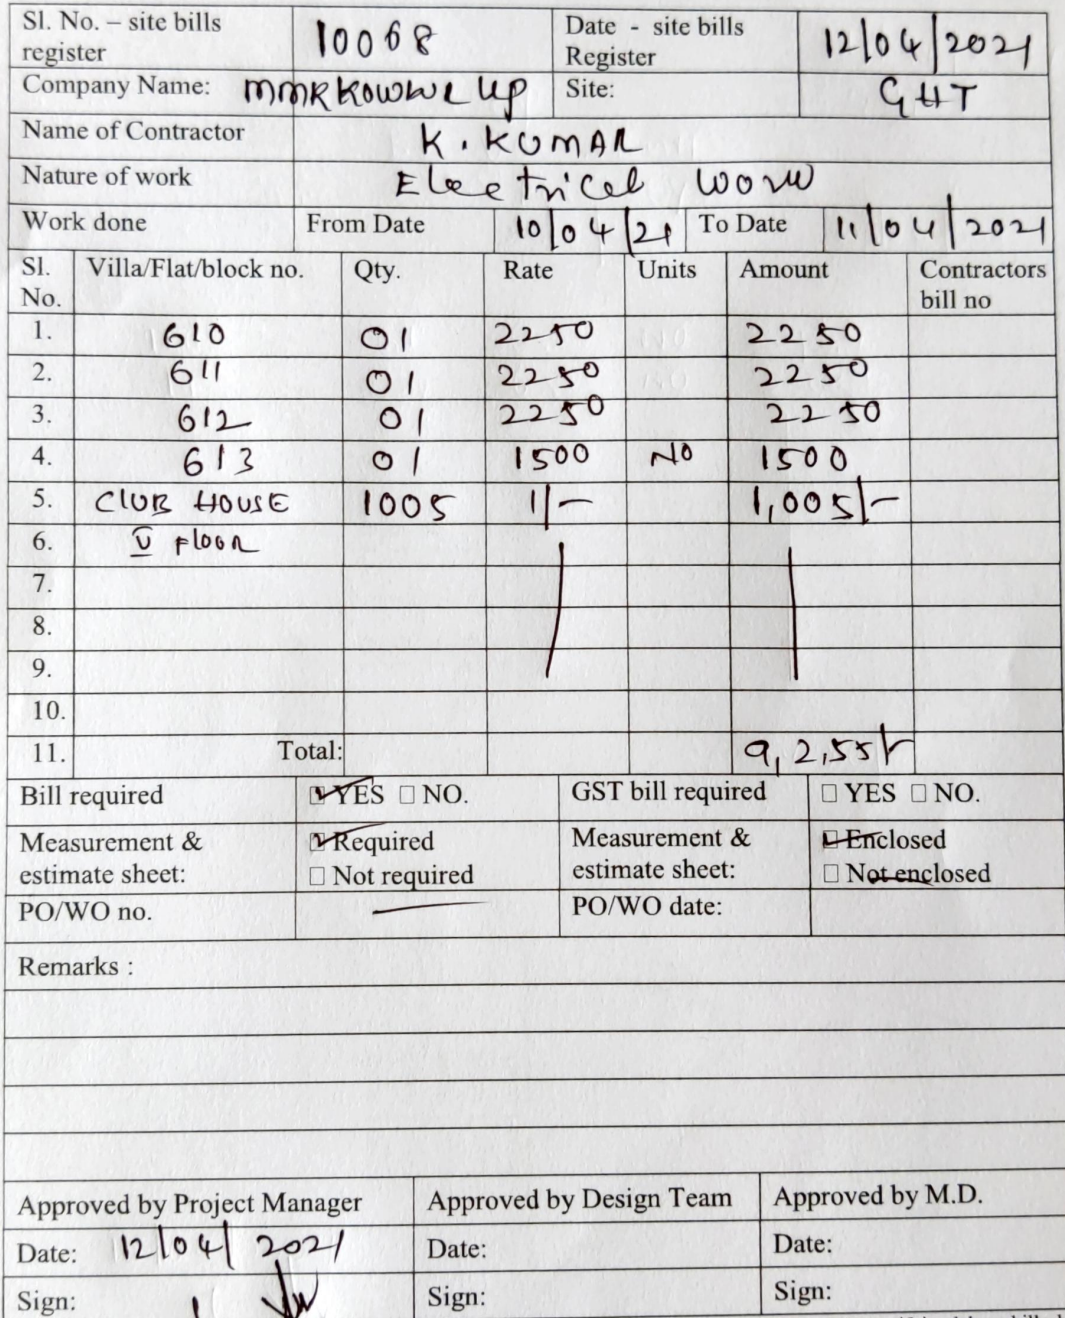 Sl. No. – site bills register 10068 Date - site bills Register 12/04/2021
Company Name: Site: GHT
Name of Contractor K. KUMAR
Nature of work Electrical work
Work done From Date 10/04/21 To Date 11/04/2021
Sl. No. Villa/Flat/block no. Qty. Rate Units Amount Contractors bill no
1. 610 01 2250 NO 2250
2. 611 01 2250 NO 2250
3. 612 01 2250 2250
4. 613 01 1500 NO 1500
5. CLUB HOUSE 1005 1/- 1,005/-
6. V FLOOR
7.
8.
9.
10.
11. Total: 9,2,55/-
Bill required YES NO. GST bill required YES NO.
Measurement & estimate sheet: Required Not required Measurement & estimate sheet: Enclosed Not enclosed
PO/WO no. PO/WO date:
Remarks :
Approved by Project Manager Approved by Design Team Approved by M.D.
Date: 12/04/2021 Date: Date:
Sign: Sign: Sign: